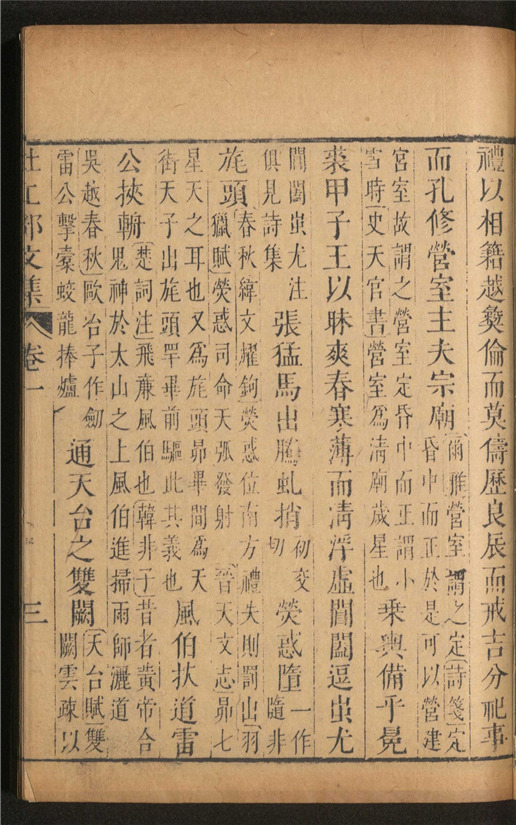 禮以相籍越彝倫而莫儔歷良辰而戒吉分祀事
而孔修營室主夫宗廟
爾雅營室謂之定詩箋定
昏中而正於是可以營建
宮室故謂之營室定昏中而正謂小
雪時史天官書營室爲淸廟歲星也
乘輿備乎冕
裘甲子王以昧爽春寒薄而淸浮虛閶闔逗蚩尤
閶闔蚩尤注
俱見詩集
張猛馬出騰虬捎
初交
切
熒惑墮
一作
隨非
旄頭
春秋緯文耀鉤熒惑位南方禮失則罰出羽
獵賦熒惑司命天弧發射 晉天文志昴七
星天之耳也又爲旄頭昴畢間爲天
街天子出旄頭罕畢前驅此其義也
風伯扶道雷
公挾輈
楚詞注飛廉風伯也韓非子昔者黃帝合
鬼神於太山之上風伯進掃雨師灑道
吳越春秋歐冶子作劒
雷公擊橐蛟龍捧爐
通天台之雙闕
天台賦雙
闕雲竦以
杜工部文集 卷一 三